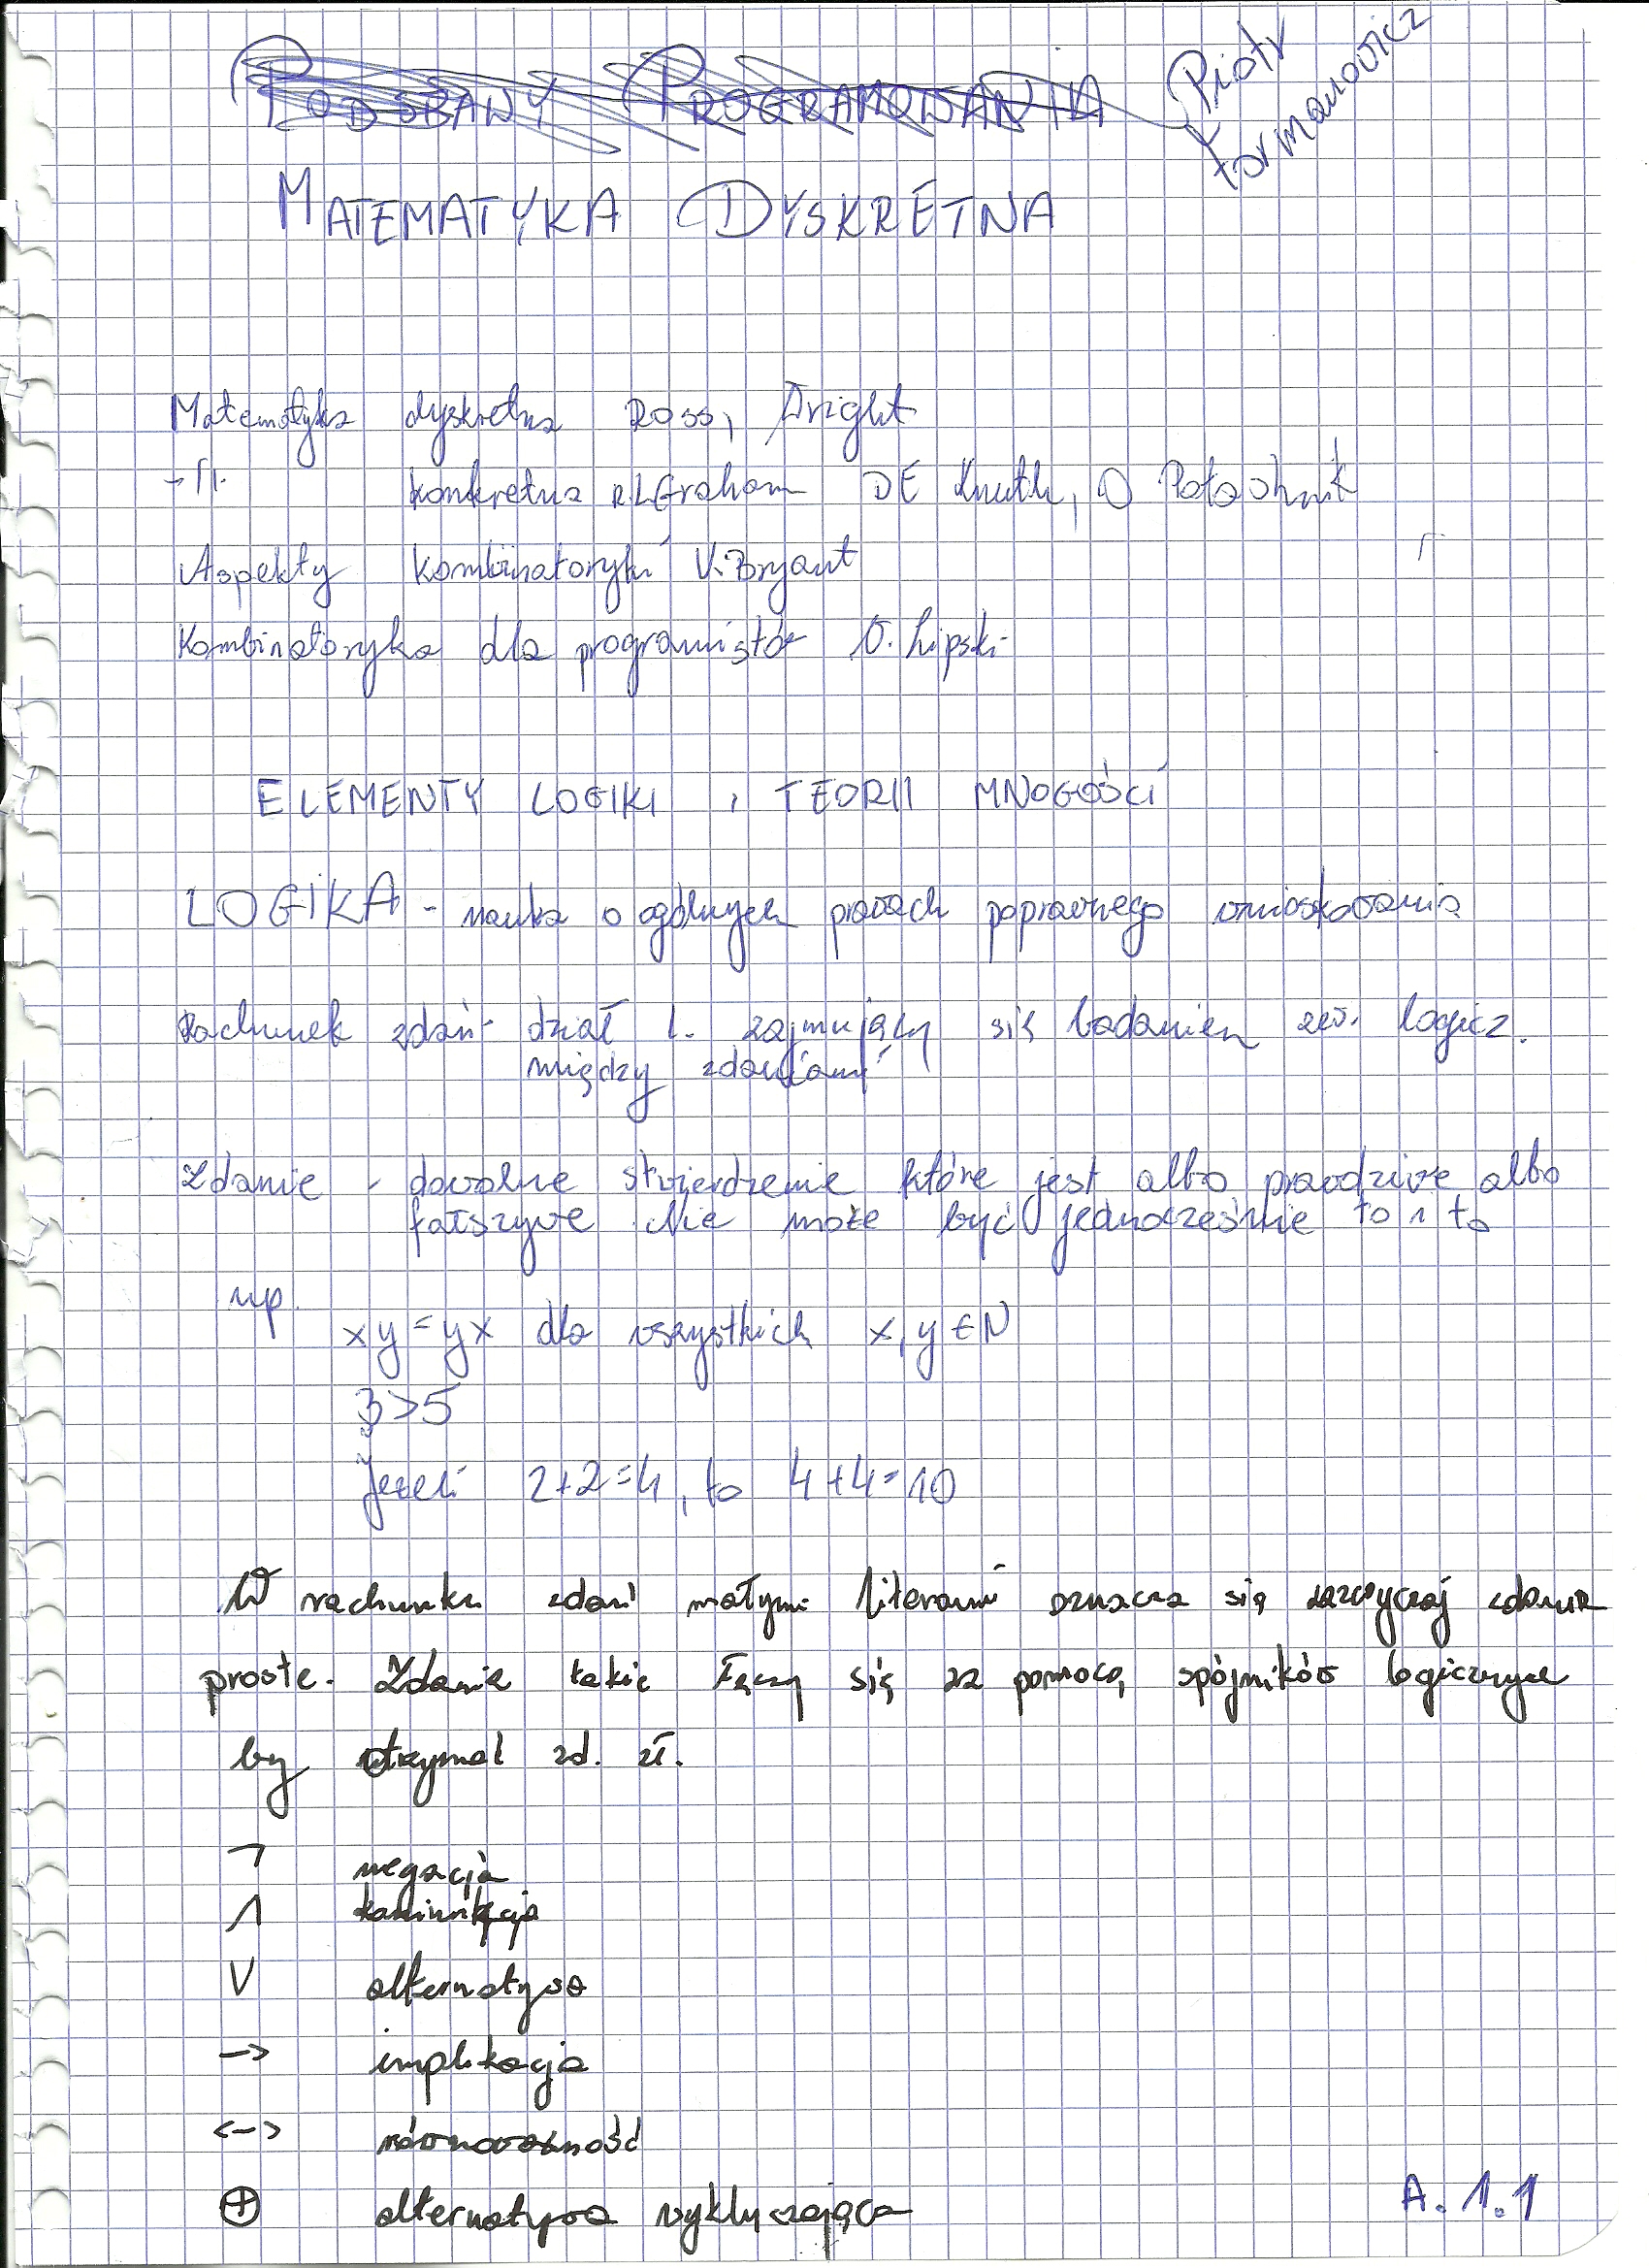 PODSTAWY PROGRAMOWANIA
Piotr
Formanowicz
MATEMATYKA DYSKRETNA
Matematyka dyskretna Ross, Wright
-"- konkretna R.L Graham DE Knuth, O Patashnik
Aspekty kombinatoryki V. Bryant
Kombinatoryka dla programistów W. Lipski
ELEMENTY LOGIKI I TEORII MNOGOŚCI
LOGIKA - nauka o ogólnych prawach poprawnego wnioskowania
Rachunek zdań - dział l. zajmujący się badaniem zw. logicz.
między zdaniami
Zdanie - dowolne stwierdzenie które jest albo prawdziwe albo
fałszywe. Nie może być jednocześnie to i to
np.
xy = yx dla wszystkich x, y ∈ N
3 > 5
Jeżeli 2+2=4, to 4+4=10
W rachunku zdań małymi literami oznacza się zazwyczaj zdania
proste. Zdania takie łączy się za pomocą spójników logicznych
by otrzymać zd. zł.
¬ negacja
∧ koniunkcja
∨ alternatywa
-> implikacja
<-> równoważność
⊕ alternatywa wykluczająca
A.1.1